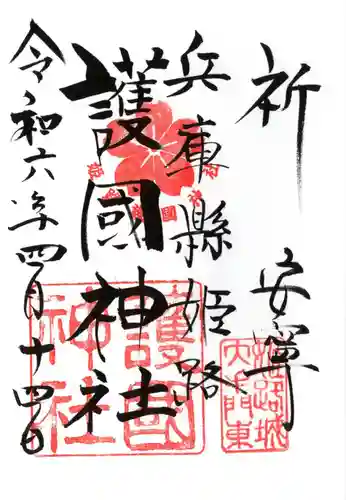 祈 安寧
兵庫縣姫路
護國神社
令和六年四月十四日
姫路城
大手門東
護國
神社